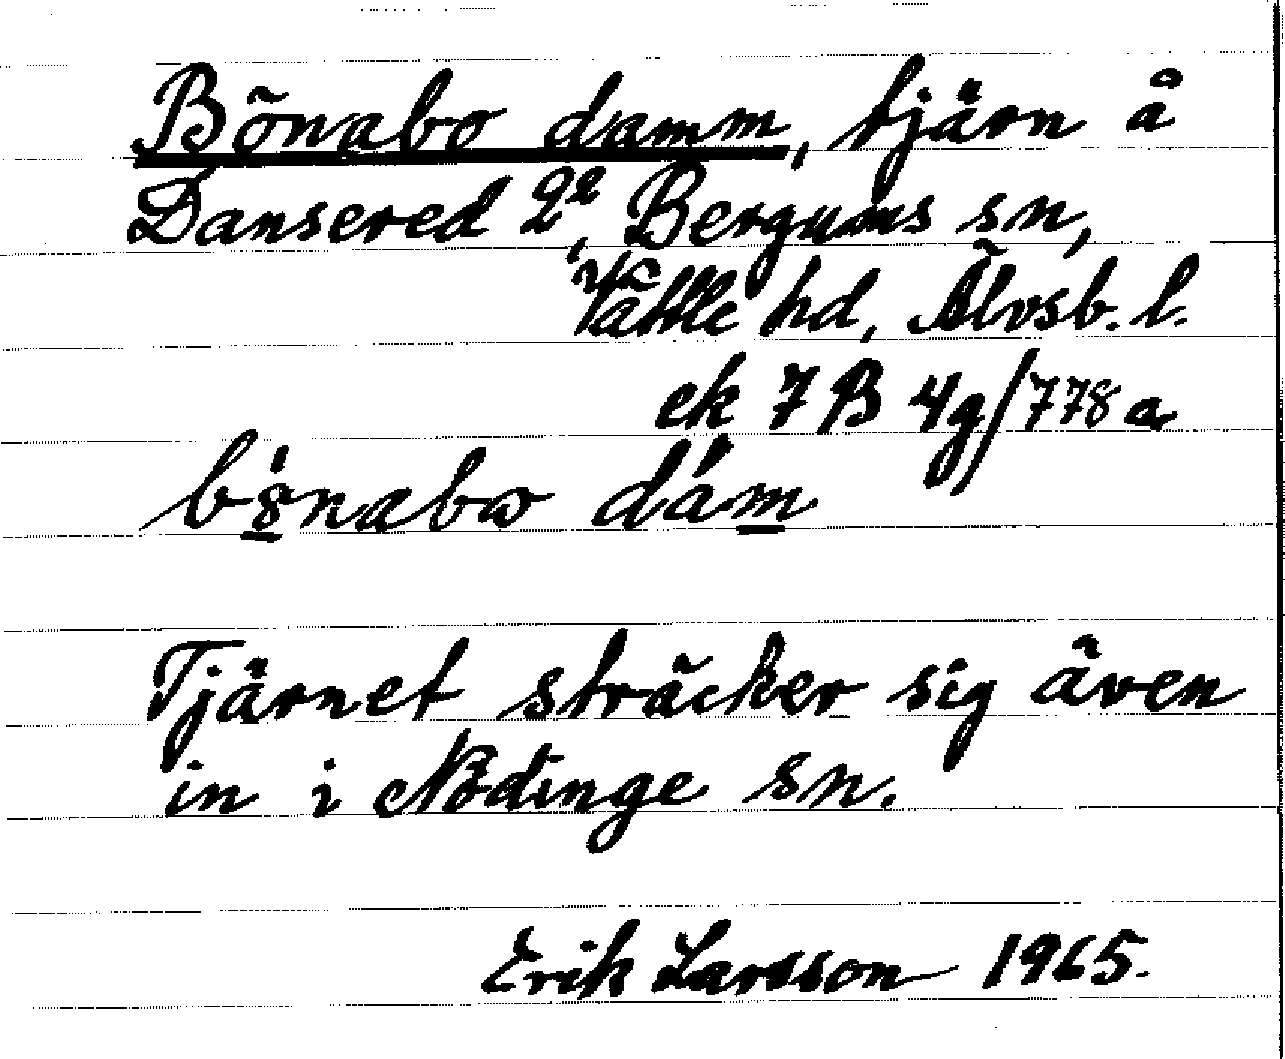 Bönabo damm, tjärn å
Dansered 2², Bergums sn,
Vättle hd, Älvsb. l.
ek 7 B 4g/778 a
dám
Tjärnet sträcker sig även
in i Nödinge sn.
Erik Larsson 1965.